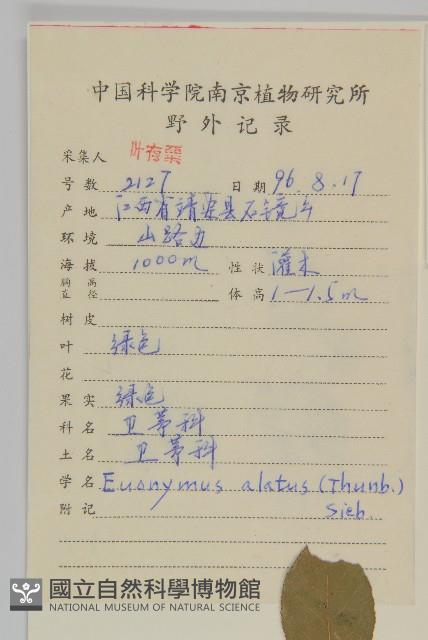 中国科学院南京植物研究所
野外记录
采集人 叶存粟
号数 2127 日期 96.8.17
产地 江西省靖安县石镜山
环境 山路边
海拔 1000m 性状 灌木
胸高直径 体高 1—1.5m
树皮
叶 绿色
花
果实 绿色
科名 卫茅科
土名 卫茅科
学名 Euonymus alatus (Thunb.)
附记 Sieb.
國立自然科學博物館
NATIONAL MUSEUM OF NATURAL SCIENCE